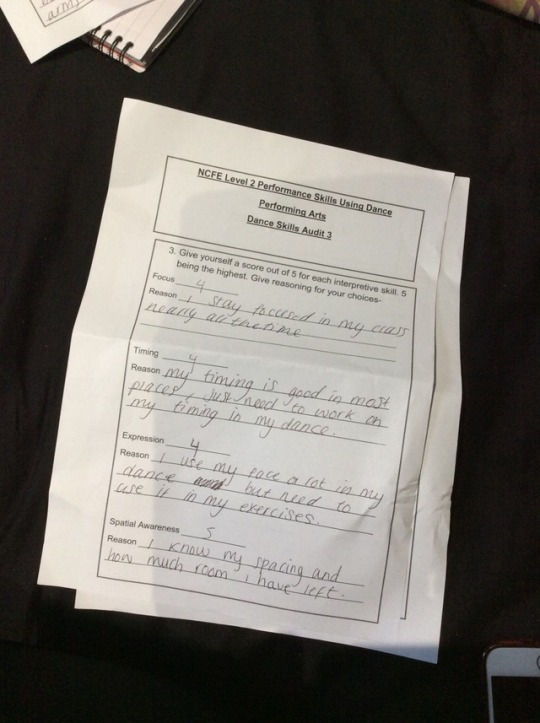 arms
NCFE Level 2 Performance Skills Using Dance
Performing Arts
Dance Skills Audit 3
3. Give yourself a score out of 5 for each interpretive skill. 5
being the highest. Give reasoning for your choices-
Focus 4
Reason I stay focused in my class
nearly all the time
Timing 4
Reason my timing is good in most
places, just need to work on
my timing in my dance.
Expression 4
Reason I use my face a lot in my
dance but need to
use it in my exercises.
Spatial Awareness 5
Reason I know my spacing and
how much room i have left.